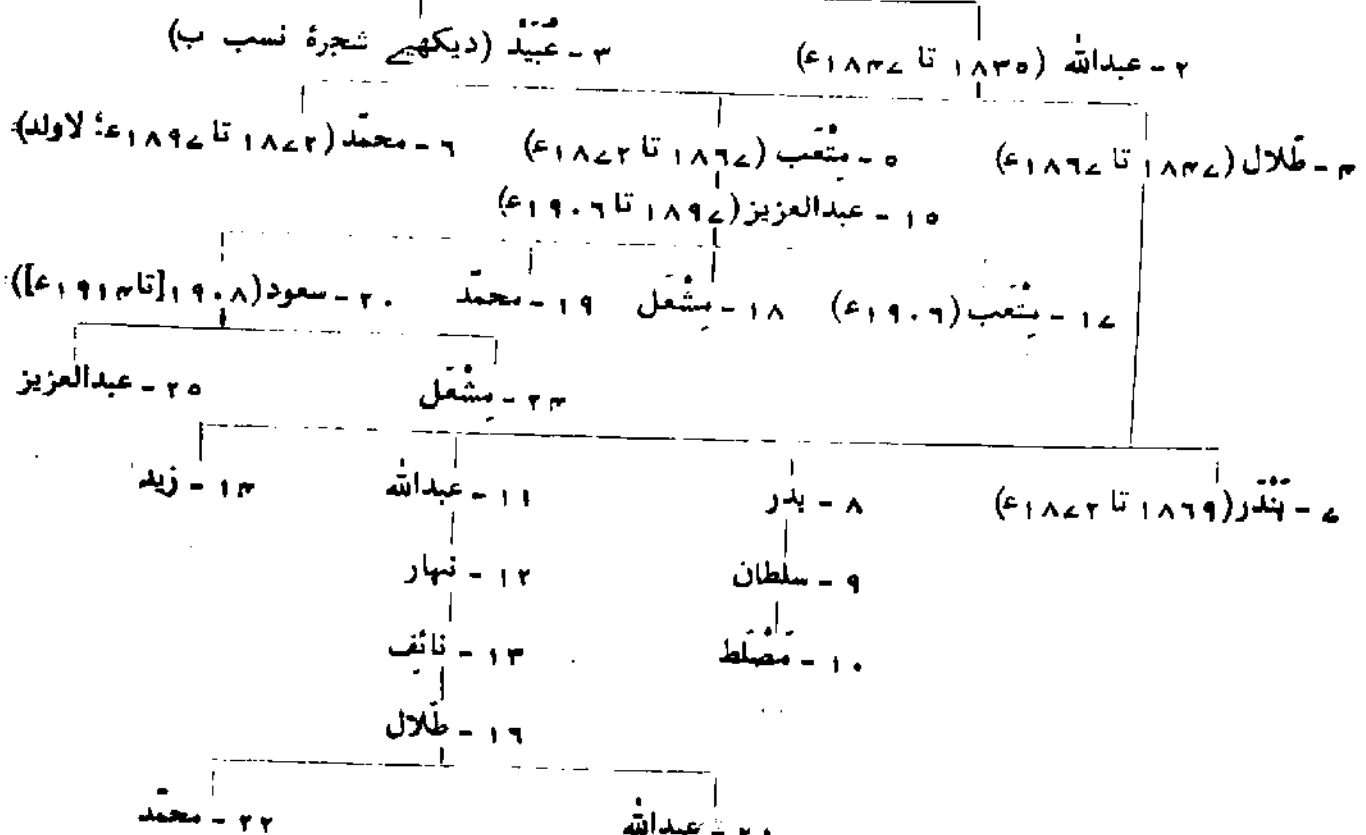 ۲ - عبداللہ (۱۸۳۵ تا ۱۸۴۷ء) ۳ - عُبَیْد (دیکھیے شجرۂ نسب ب)
۴ - طَلال (۱۸۴۷ تا ۱۸۶۷ء) ۵ - مِتْعَب (۱۸۶۷ تا ۱۸۷۲ء) ۶ - محمّد (۱۸۷۲ تا ۱۸۹۷ء؛ لاولد)
۱۵ - عبدالعزیز (۱۸۹۷ تا ۱۹۰۶ء)
۱۷ - مِتْعَب (۱۹۰۶ء) ۱۸ - مِشْعَل ۱۹ - محمّد ۲۰ - سعود (۱۹۰۸ [تا ۱۹۱۴ء])
۲۴ - مِشْعَل ۲۵ - عبدالعزیز
۷ - بَنْدَر (۱۸۶۹ تا ۱۸۷۲ء) ۸ - بدر ۱۱ - عبداللہ ۱۴ - زید
۹ - سلطان ۱۲ - نہار
۱۰ - مَضْلَط ۱۳ - نائِف
۱۶ - طَلال
عبداللہ ۲۲ - محمّد